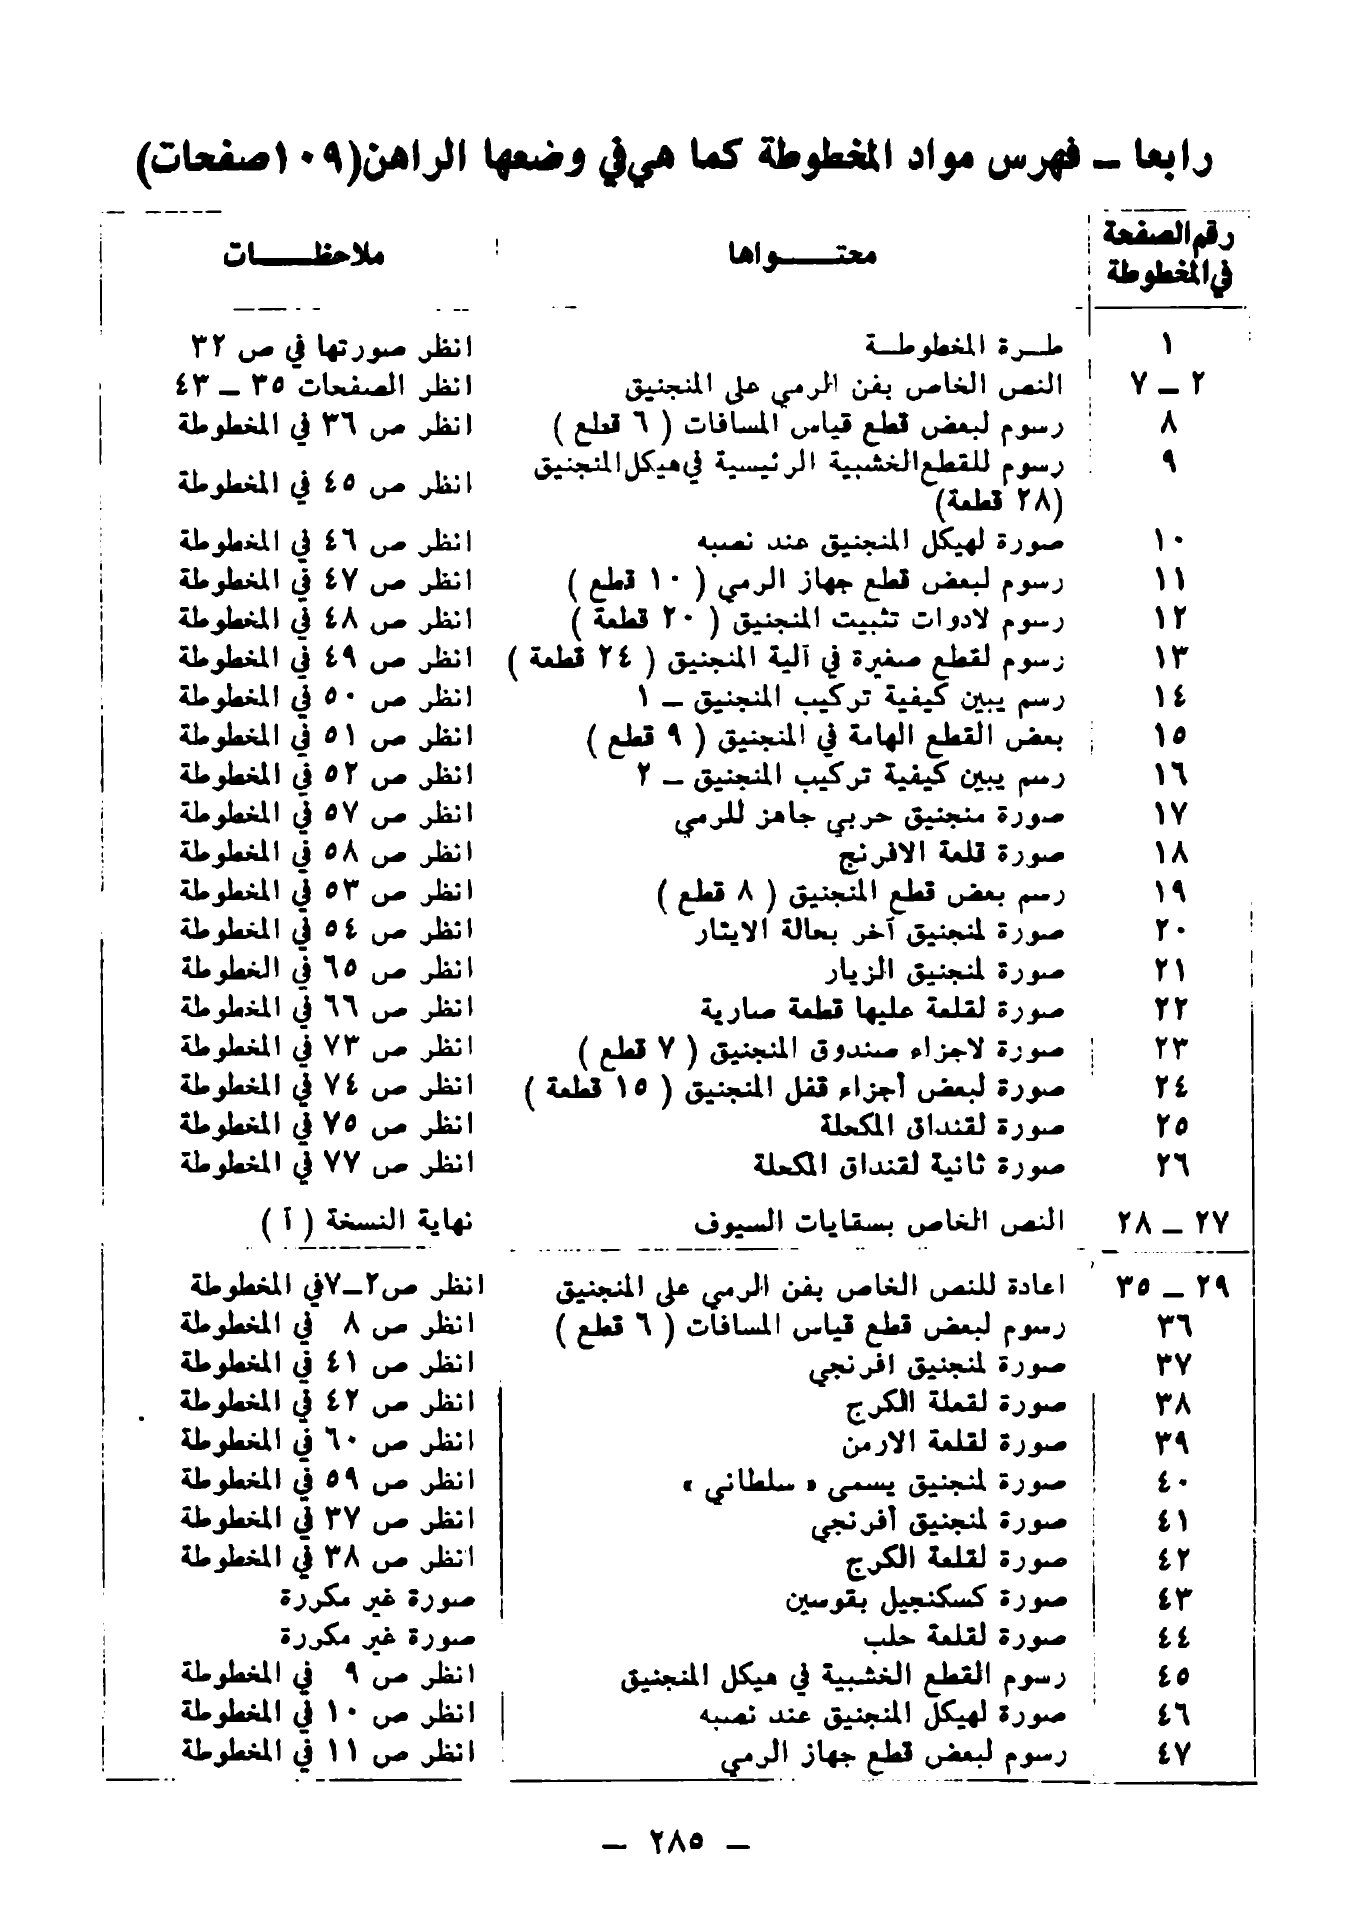 رابعا – فهرس مواد المخطوطة كما هي في وضعها الراهن (١٠٩ صفحات)
رقم الصفحة في المخطوطة محتـــواها ملاحظـــات
١ طـرة المخطوطـة انظر صورتها في ص ٣٢
٢ – ٧ النص الخاص بفن الرمي على المنجنيق انظر الصفحات ٣٥ – ٤٣
٨ رسوم لبعض قطع قياس المسافات ( ٦ قطع ) انظر ص ٣٦ في المخطوطة
٩ رسوم للقطع الخشبية الرئيسية في هيكل المنجنيق
(٢٨ قطعة) انظر ص ٤٥ في المخطوطة
١٠ صورة لهيكل المنجنيق عند نصبه انظر ص ٤٦ في المخطوطة
١١ رسوم لبعض قطع جهاز الرمي ( ١٠ قطع ) انظر ص ٤٧ في المخطوطة
١٢ رسوم لادوات تثبيت المنجنيق ( ٢٠ قطعة ) انظر ص ٤٨ في المخطوطة
١٣ رسوم لقطع صغيرة في آلية المنجنيق ( ٢٤ قطعة ) انظر ص ٤٩ في المخطوطة
١٤ رسم يبين كيفية تركيب المنجنيق – ١ انظر ص ٥٠ في المخطوطة
١٥ بعض القطع الهامة في المنجنيق ( ٩ قطع ) انظر ص ٥١ في المخطوطة
١٦ رسم يبين كيفية تركيب المنجنيق – ٢ انظر ص ٥٢ في المخطوطة
١٧ صورة منجنيق حربي جاهز للرمي انظر ص ٥٧ في المخطوطة
١٨ صورة قلعة الافرنج انظر ص ٥٨ في المخطوطة
١٩ رسم بعض قطع المنجنيق ( ٨ قطع ) انظر ص ٥٣ في المخطوطة
٢٠ صورة لمنجنيق آخر بحالة الايتار انظر ص ٥٤ في المخطوطة
٢١ صورة لمنجنيق الزيار انظر ص ٦٥ في الخطوطة
٢٢ صورة لقلعة عليها قطعة صارية انظر ص ٦٦ في المخطوطة
٢٣ صورة لاجزاء صندوق المنجنيق ( ٧ قطع ) انظر ص ٧٣ في المخطوطة
٢٤ صورة لبعض أجزاء قفل المنجنيق ( ١٥ قطعة ) انظر ص ٧٤ في المخطوطة
٢٥ صورة لقنداق المكحلة انظر ص ٧٥ في المخطوطة
٢٦ صورة ثانية لقنداق المكحلة انظر ص ٧٧ في المخطوطة
٢٧ – ٢٨ النص الخاص بسقايات السيوف نهاية النسخة ( آ )
٢٩ – ٣٥ اعادة للنص الخاص بفن الرمي على المنجنيق انظر ص٢–٧في المخطوطة
٣٦ رسوم لبعض قطع قياس المسافات ( ٦ قطع ) انظر ص ٨ في المخطوطة
٣٧ صورة لمنجنيق افرنجي انظر ص ٤١ في المخطوطة
٣٨ صورة لقعلة الكرج انظر ص ٤٢ في المخطوطة
٣٩ صورة لقلعة الارمن انظر ص ٦٠ في المخطوطة
٤٠ صورة لمنجنيق يسمى « سلطاني » انظر ص ٥٩ في المخطوطة
٤١ صورة لمنجنيق أفرنجي انظر ص ٣٧ في المخطوطة
٤٢ صورة لقلعة الكرج انظر ص ٣٨ في المخطوطة
٤٣ صورة كسكنجيل بقوسين صورة غير مكررة
٤٤ صورة لقلعة حلب صورة غير مكررة
٤٥ رسوم القطع الخشبية في هيكل المنجنيق انظر ص ٩ في المخطوطة
٤٦ صورة لهيكل المنجنيق عند نصبه انظر ص ١٠ في المخطوطة
٤٧ رسوم لبعض قطع جهاز الرمي انظر ص ١١ في المخطوطة
– ٢٨٥ –